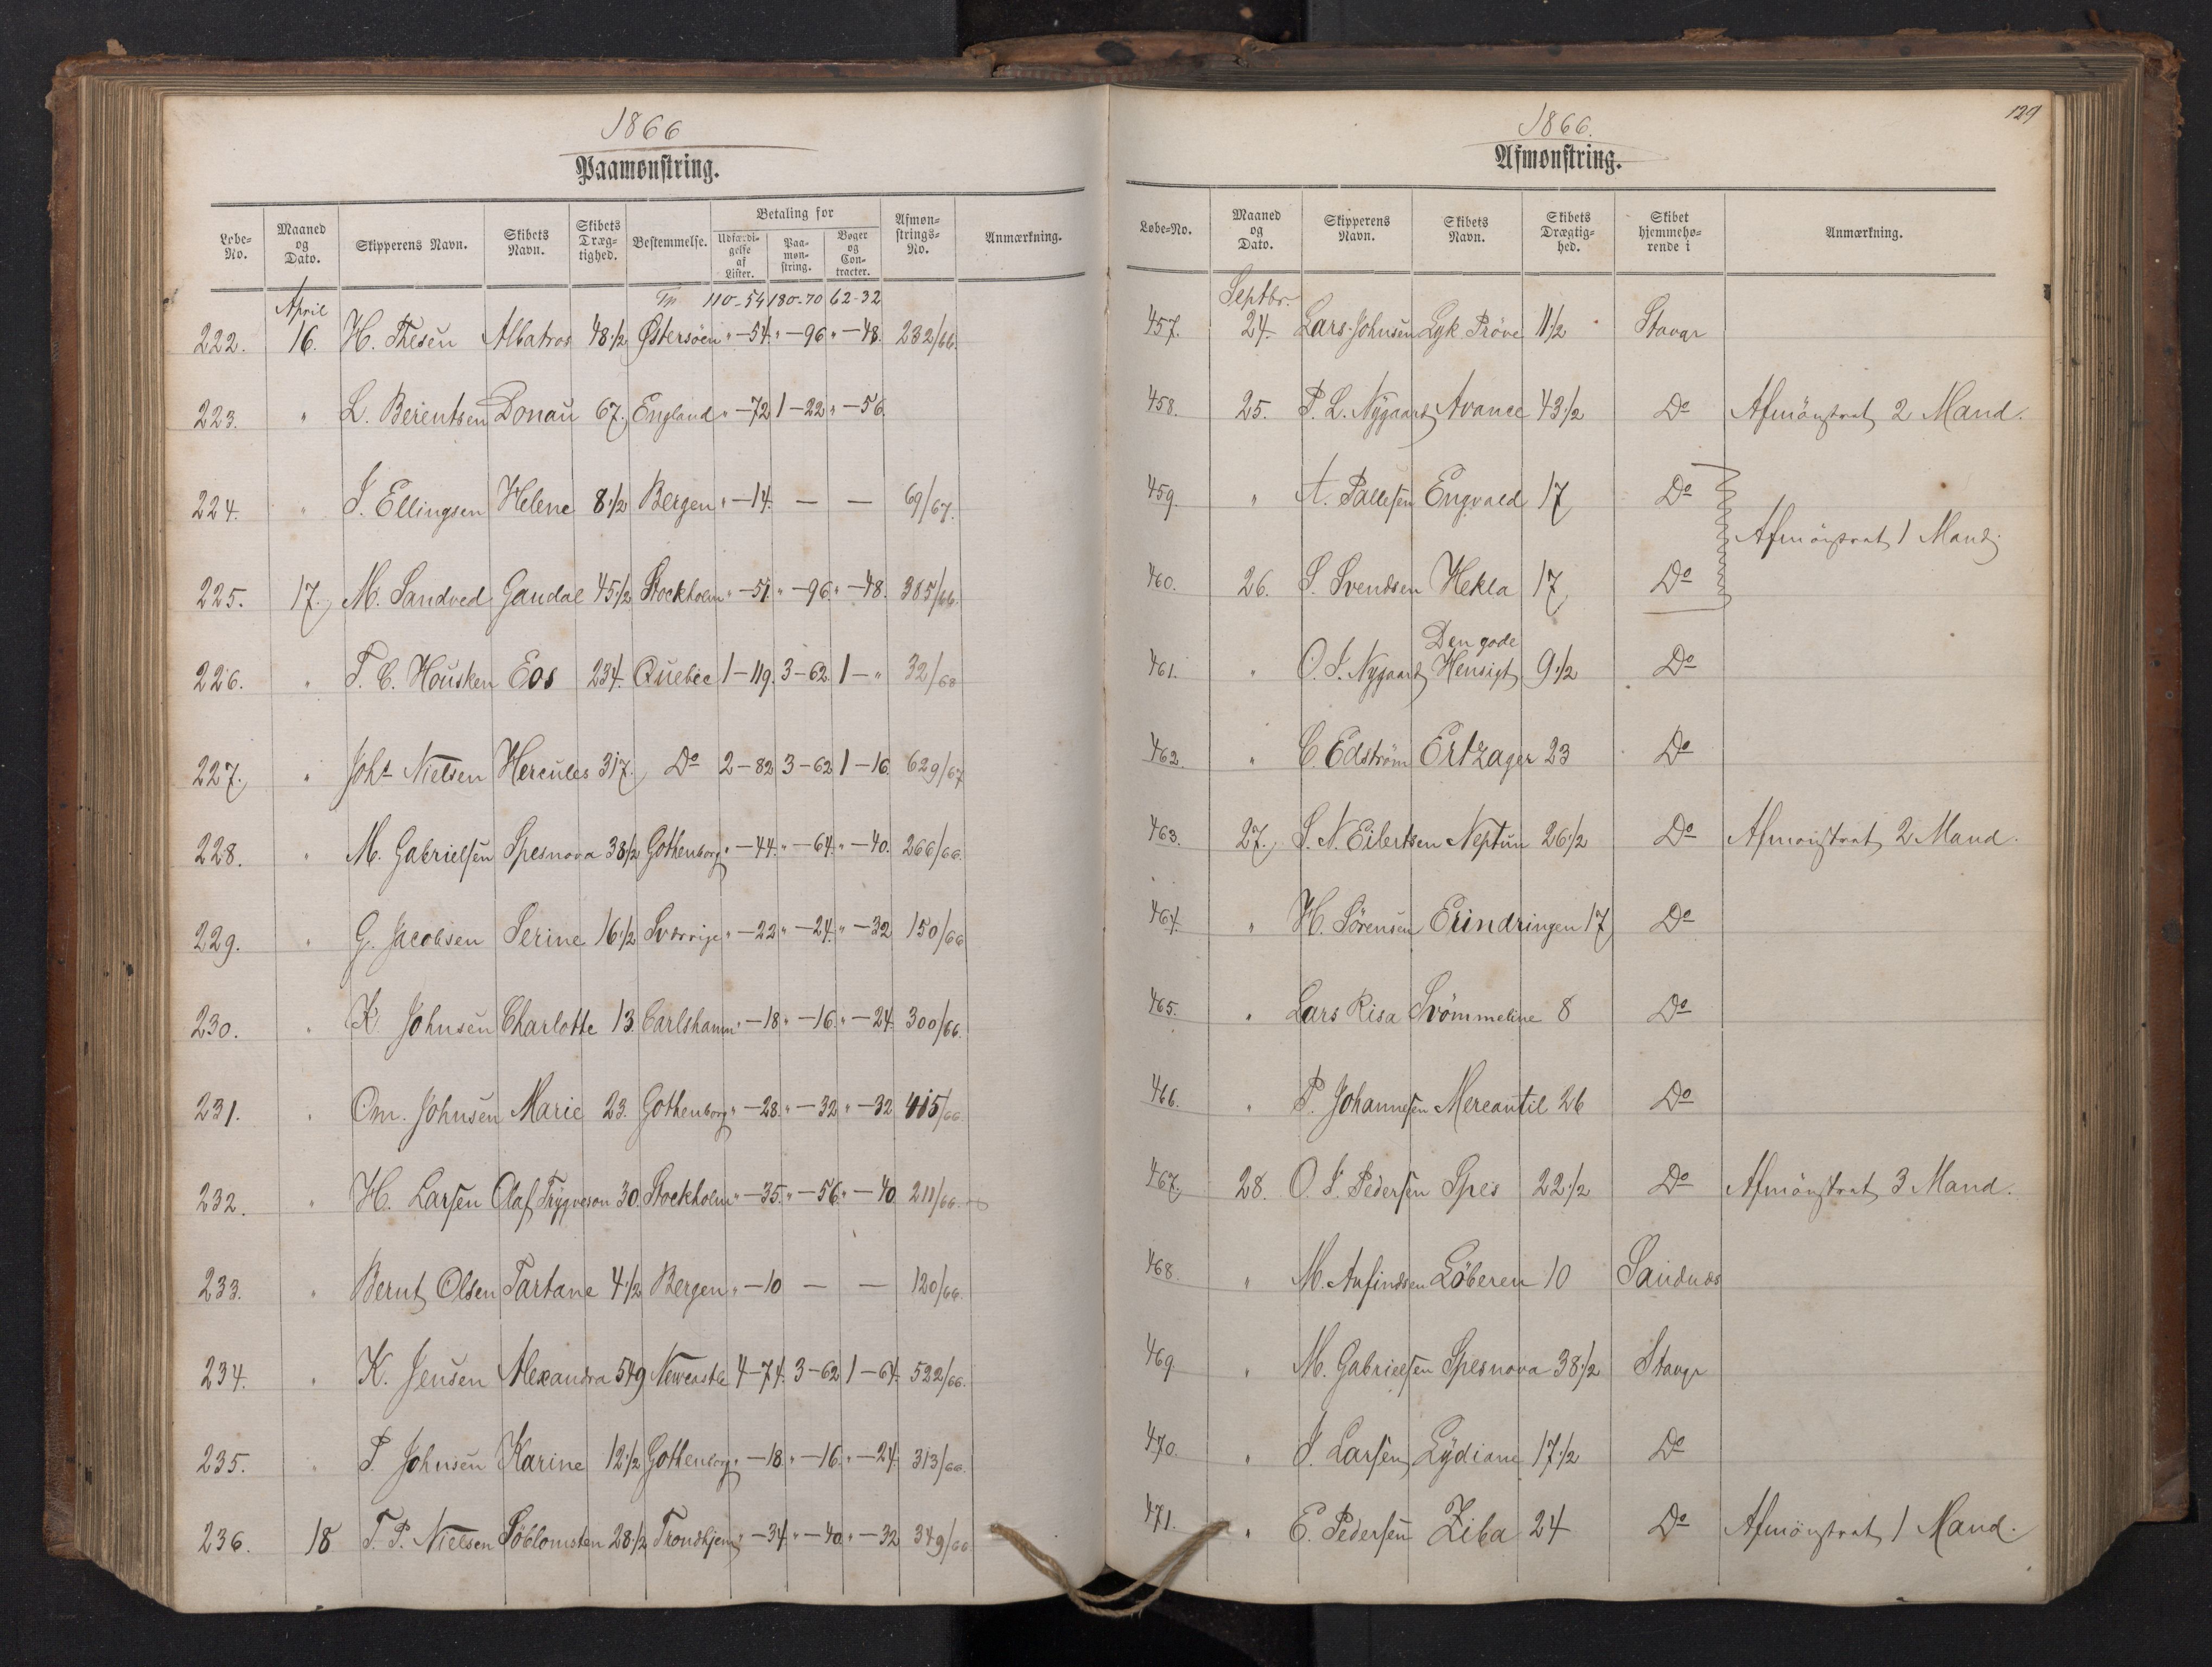 1866
Paamønstring.
Løbe-No. | Maaned og Dato. | Skipperens Navn. | Skibets Navn. | Skibets Dræg-tighed. | Bestemmelse. | Betaling for | Udfærdi-gelse af Lister. | Paa-møn-string. | Bøger og Con-tracter. | Afmøn-strings-No. | Anmærkning.
April 110-54 180-70 62-32
222. 16. H. Thesen Albatros 48 1/2 Østersöen " -54. " -96 " -48. 232/66.
223. " L. Berentsen Donau 67. England " -72 1-22 " -56.
224. " J. Ellingsen Helene 8 1/2 Bergen " -14. — — 69/67.
225. 17. M. Sandved Gandal 45 1/2 Stockholm " -51. " -96. " -48. 385/66.
226. " T. C. Housken Eos 234. Quebec 1-119. 3-62. 1-" 32/68
227. " Joh. Nielsen Hercules 317. Do 2-82 3-62 1-16. 629/67
228. " M. Gabrielsen Spesnova 38 1/2 Gothenborg " -44. " -64. " -40. 266/66.
229. " G. Jacobsen Serine 16 1/2 Sverrige " -22 " -24. " -32 150/66
230. " K. Johnsen Charlotte 13 Carlshamn " -18. " -16. " -24. 300/66.
231. " Om. Johnsen Marie 23. Gothenborg " -28. " -32 " -32 415/66
232. " H. Larsen Olaf Trygveson 30. Stockholm " -35. " -56. " -40 211/66.
233. " Bernt Olsen Tartane 4 1/2 Bergen " -10 — — 120/66.
234. " K. Jensen Alexandra 549 Newcastle 4-74. 3-62 1-64. 522/66.
235. " P. Johnsen Karine 12 1/2 Gothenborg " -18. " -16. " -24. 313/66.
236. 18 T. P. Nielsen Söblomsten 28 1/2 Trondhjem " -34 " -40. " -32 349/66
129
1866.
Afmønstring.
Løbe-No. | Maaned og Dato. | Skipperens Navn. | Skibets Navn. | Skibets Drægtig-hed. | Skibet hjemmehø-rende i | Anmærkning.
Septbr.
457. 24. Lars Johnsen Lyk. Pröve 11 1/2 Stavgr
458. 25. P. L. Nygaard Avance 43 1/2 Do Afmönstrat 2 Mand.
459. " A. Pallesen Engvald 17 Do
Afmönstrat 1 Mand.
460. 26. S. Svendsen Hekla 17 Do
461. " O. J. Nygaard Den gode Hensigt 9 1/2 Do
462. " C. Edström Ertzager 23 Do
463. 27. S. N. Eilertsen Neptun 26 1/2 Do Afmönstrat 2 Mand.
464. " H. Sörensen Erindringen 17 Do
465. " Lars Risa Svömmeline 8 Do
466. " P. Johannesen Mercantil 26 Do
467. 28. O. J. Pedersen Spes 22 1/2 Do Afmönstrat 3 Mand.
468. " M. Anfindsen Löberen 10 Sandnæs
469. " M. Gabrielsen Spesnova 38 1/2 Stavgr
470. " J. Larsen Lydiane 17 1/2 Do
471. " E. Pedersen Ziba 24 Do Afmönstrat 1 Mand.